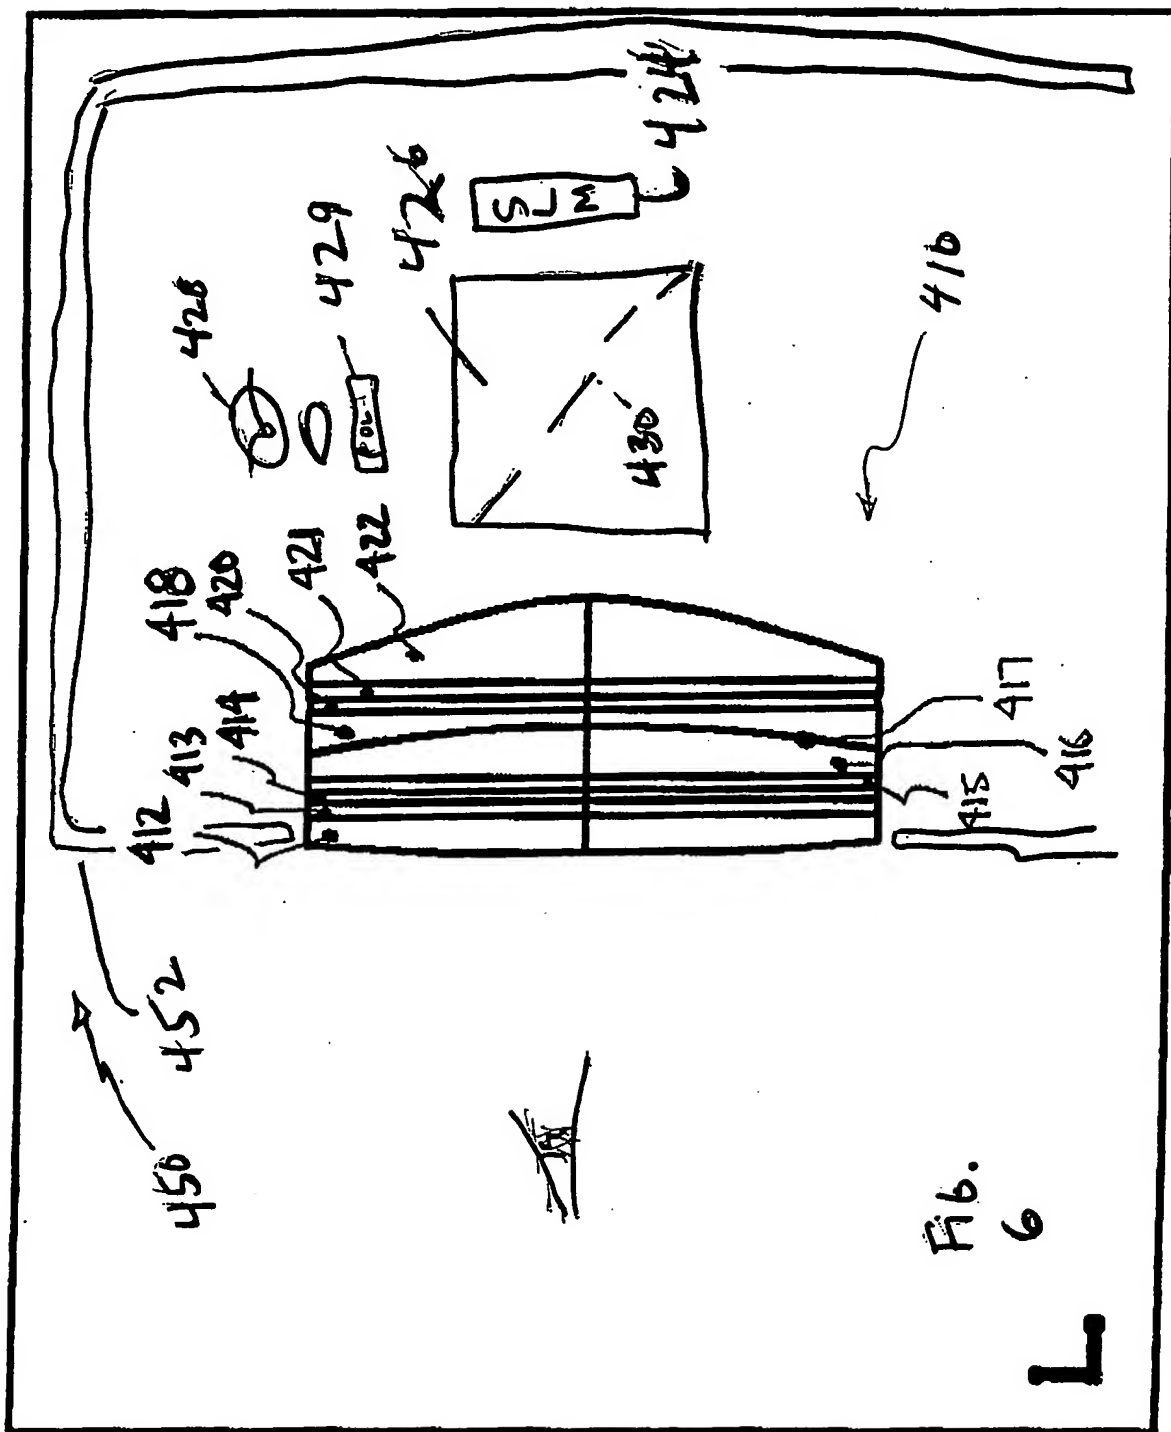 450
452
412
413
414
418
420
421
422
428
429
POL-
426
SLM
424
430
410
415
416
417
Fig.
6